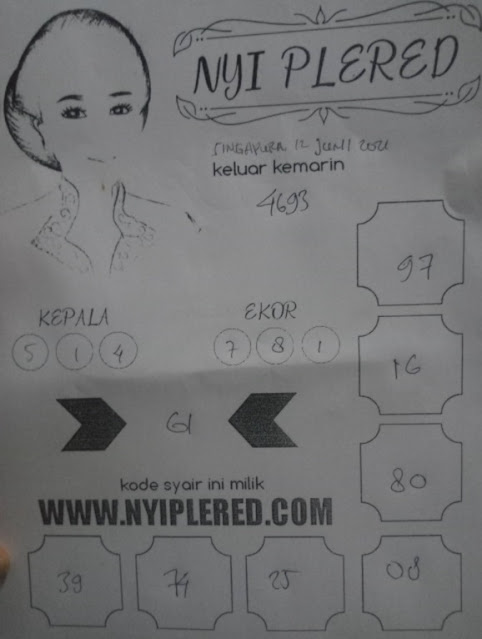 NYI PLERED
SINGAPURA 12 JUNI 2021
keluar kemarin
4693
97
KEPALA
EKOR
5 1 4
7 8 1
16
61
80
kode syair ini milik
WWW.NYIPLERED.COM
39
74
25
08